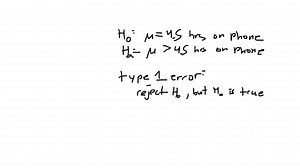 H₀: μ = 4.5 hrs on phone
Hₐ: μ > 4.5 hrs on phone
type 1 error:
reject H₀, but H₀ is true